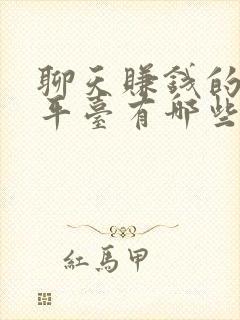 聊天賺錢的
平臺有哪些
紅馬甲